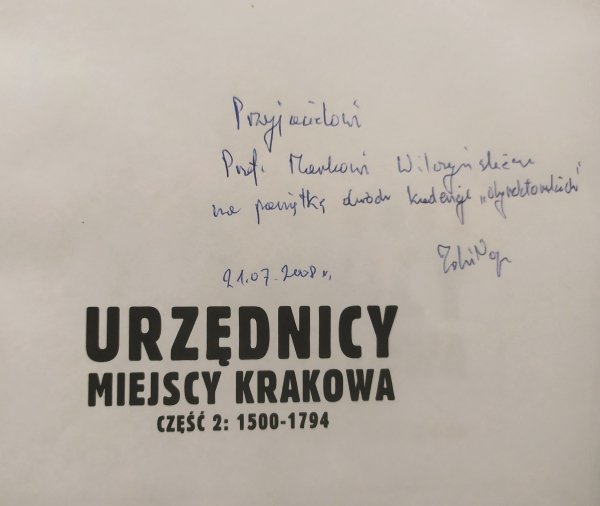 Przyjacielowi
Prof. Markowi Wilczyńskiemu
na pamiątkę dwóch kadencji „dyrektorskich”
21.07.2008 r.
URZĘDNICY
MIEJSCY KRAKOWA
CZĘŚĆ 2: 1500-1794